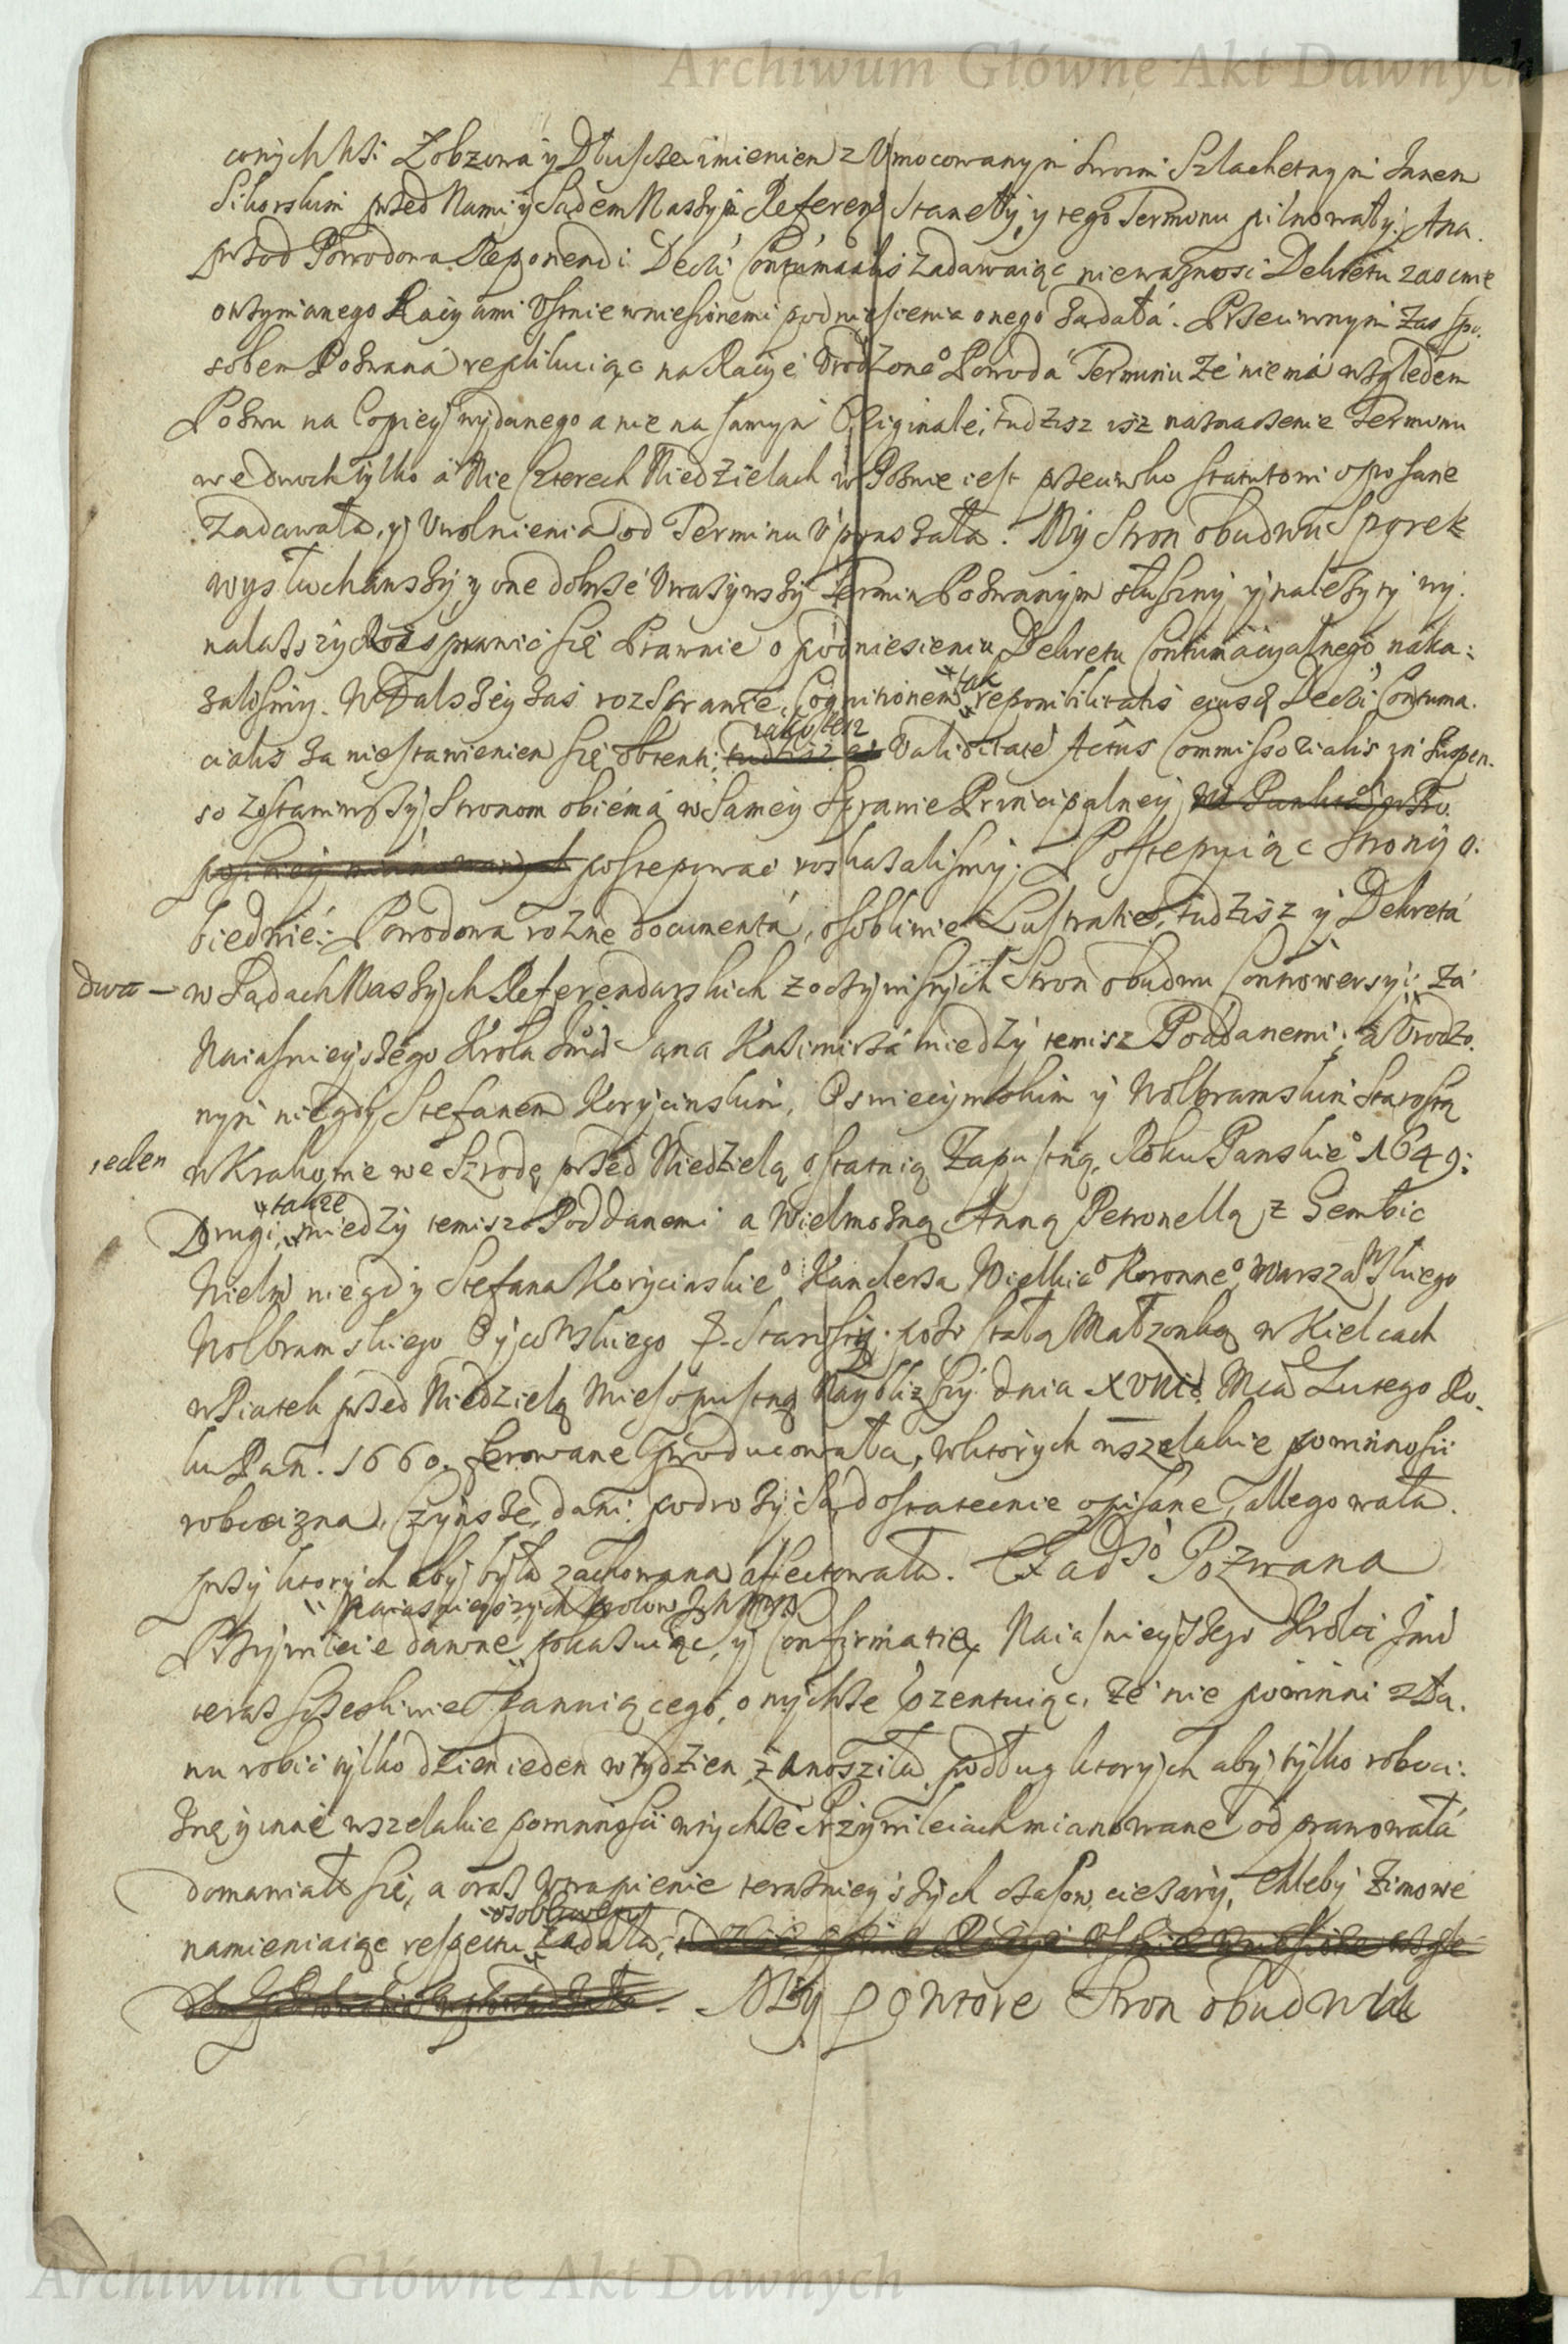 Archiwum Główne Akt Dawnych
conych Wsi Zobzowa y Dłuscza imieniem z Umocowanym swoim Szlachetnym Janem
Sikorskim przed Nami y Sądem Naszym Referen: stanęły, y tego Terminu pilnowały. A na
przod Powodowa Reponendi Decti Contumatialis zadawaiąc nieważnosci Dekretu zaocznie
otrzymanego Racyami Ustnie wniesionemi podniesienia onego żądała. Przeciwnym zas spo.
sobem Pozwana replikuiąc na Racye Urodzone° Powoda Terminu że niemá względem
Pozwu na Copiey wydanego a nie na samym Originale, tudzisz isz naznaczenie Terminu
we dwuch tylko á Nie Czterech Niedzielach w Pozwie iest przeciwko statutowi opisane
zadawała, y Uwolnienia od Terminu upraszała. My Stron obudwu Sporek
wysłuchawszy, y one dobrze Uwazywszy Termin Pozwanym słuszny y nalezyty wy.
nalazszy Rosprawić się Prawnie o podniesieniu Dekretu Contumacyalnego naka:
zalismy. W Dalszey zas rozsprawie, Cognitionem tak reponibilitatis eiusd Decti Contuma.
cialis za niestawieniem się obtenti, iako tesz Validitate Actus Commissorialis in suspen.
so zostawiwszy, Stronom obiema w samey sprawie Principalney
postępować roskazalismy. Postępuiąc Strony o.
biedwie: Powodowa rozne documenta, osobliwie Lustratie, tudzisz y Dekreta
dwa – w Sądach Naszych Referendarskich z oczywistych Stron obudwu Controwersyi, za
Naiasnieyszego Krola Jmci Jana Kazimirza między temisz Poddanemi, a Urodzo.
nym niegdy Stefanem Korycinskim, Oswiecymskim y Wolbramskim Starostą
ieden w Krakowie we Szrodę przed Niedzielą ostatnią Zapustną, Roku Panskie° 1649:
Drugi, takze między temisz Poddanemi a Wielmozną Anną Petronellą z Gembic
Wielm niegdy Stefana Korycinskie° Kanclerza Wielkie° Koronne°, Warszawskiego
Wolbramskiego Oycowskiego &. Starosty pozostałą Małzonką w Kielcach
w Piątek przed Niedzielą Mięsopustną Naybliższy dnia XVIII Mca Lutego Ro.
ku Pan. 1660. ferowane producowała, w ktorych wszelakie powinnosci
robocizna, Czynsze, dani, podrozy są dostatecznie opisane, allegowała.
przy ktorych aby była zachowana affectowała. Zas Pozwana
Przywileie dawne Naiasnieyszych Krolow Ich Mci pokazuiąc, y Confirmatię Naiasnieyszego Krola Jmci
teraz sczesliwie Pannuiącego, onychze prezentuiąc, że nie powinni z Ła.
nu robić tylko dzien ieden w tydzien zanosziła, podług ktorych aby tylko roboci:
znę y inne wszelakie powinnosci w tychze Przywileiach mianowane odprawowała
domawiała się, a oraz Utrapienie teraznieyszych czasow, cięzary, Chleby Zimowe
namieniaiąc respectu osobliwego żądała,
My powtore Stron obudwu
Archiwum Główne Akt Dawnych